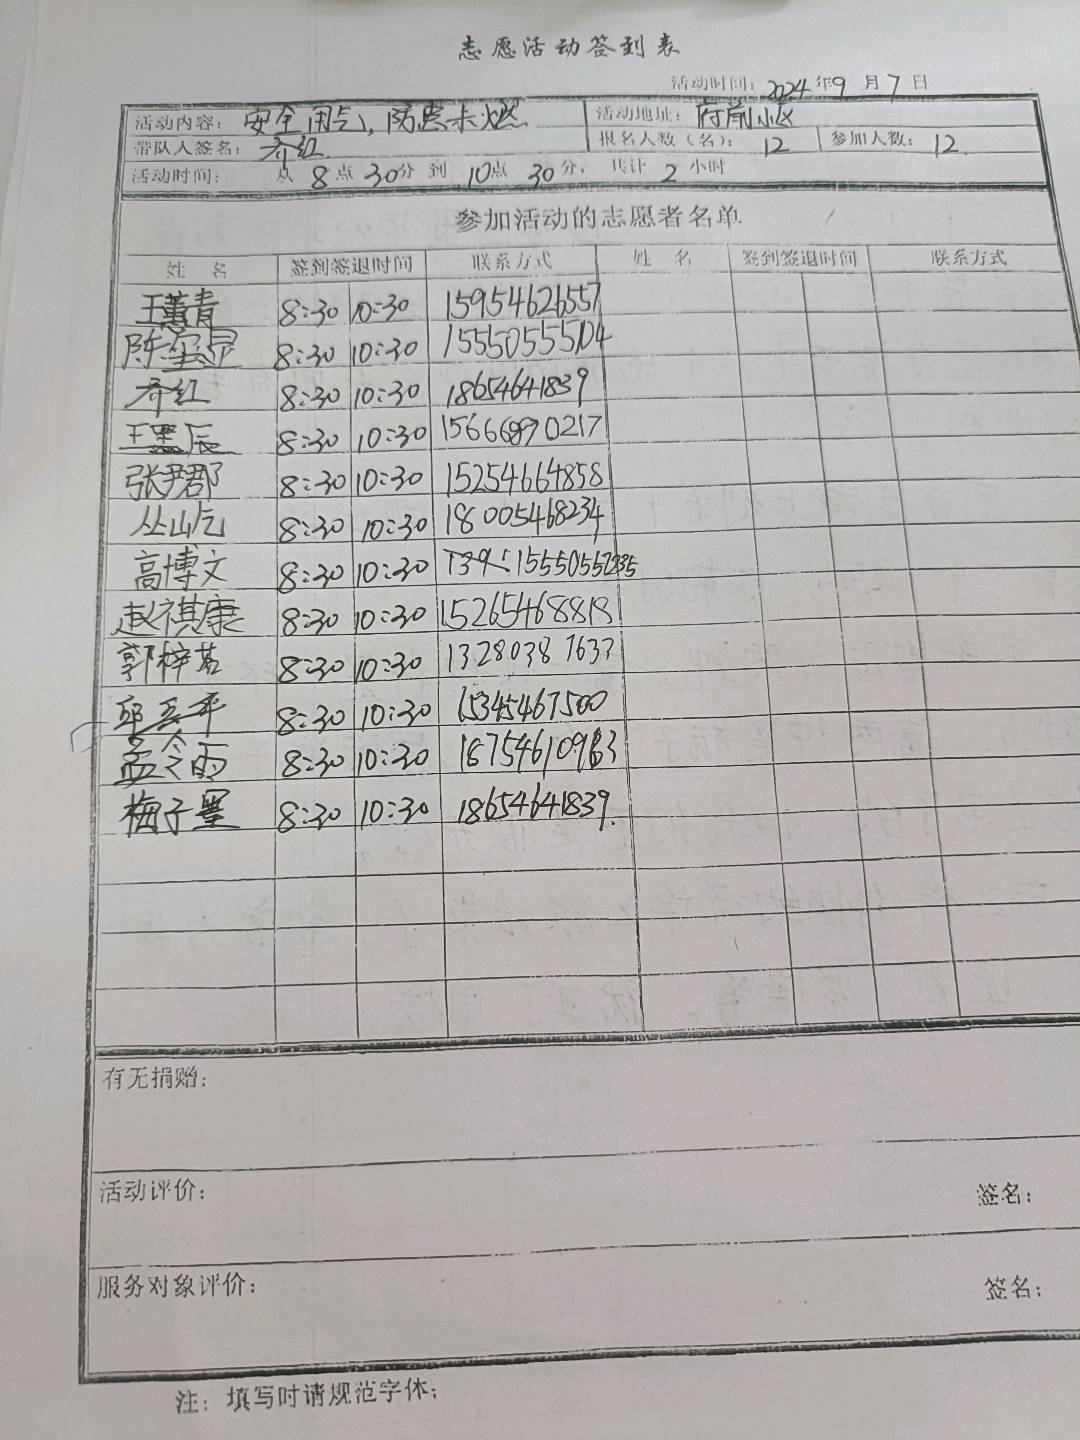 志愿活动签到表
活动时间：2024年9月7日
活动内容：安全用气，防患未燃 活动地址：府前小区
带队人签名：乔红 报名人数（名）：12 参加人数：12
活动时间： 从 8点30分到10点30分，共计2小时
参加活动的志愿者名单
姓 名 签到签退时间 联系方式 姓 名 签到签退时间 联系方式
王薰青 8:30 10:30 15954626557
陈玺显 8:30 10:30 15550555104
乔红 8:30 10:30 18654641839
王墨辰 8:30 10:30 15666890217
张尹郡 8:30 10:30 15254664858
丛山 8:30 10:30 18005468234
高博文 8:30 10:30
赵祺康 8:30 10:30 15265468818
郭梓茗 8:30 10:30 13280387633
邱 平 8:30 10:30 15345467500
孟令雨 8:30 10:30
梅子墨 8:30 10:30 18654641839.
有无捐赠：
活动评价：
签名：
服务对象评价：
签名：
注：填写时请规范字体；